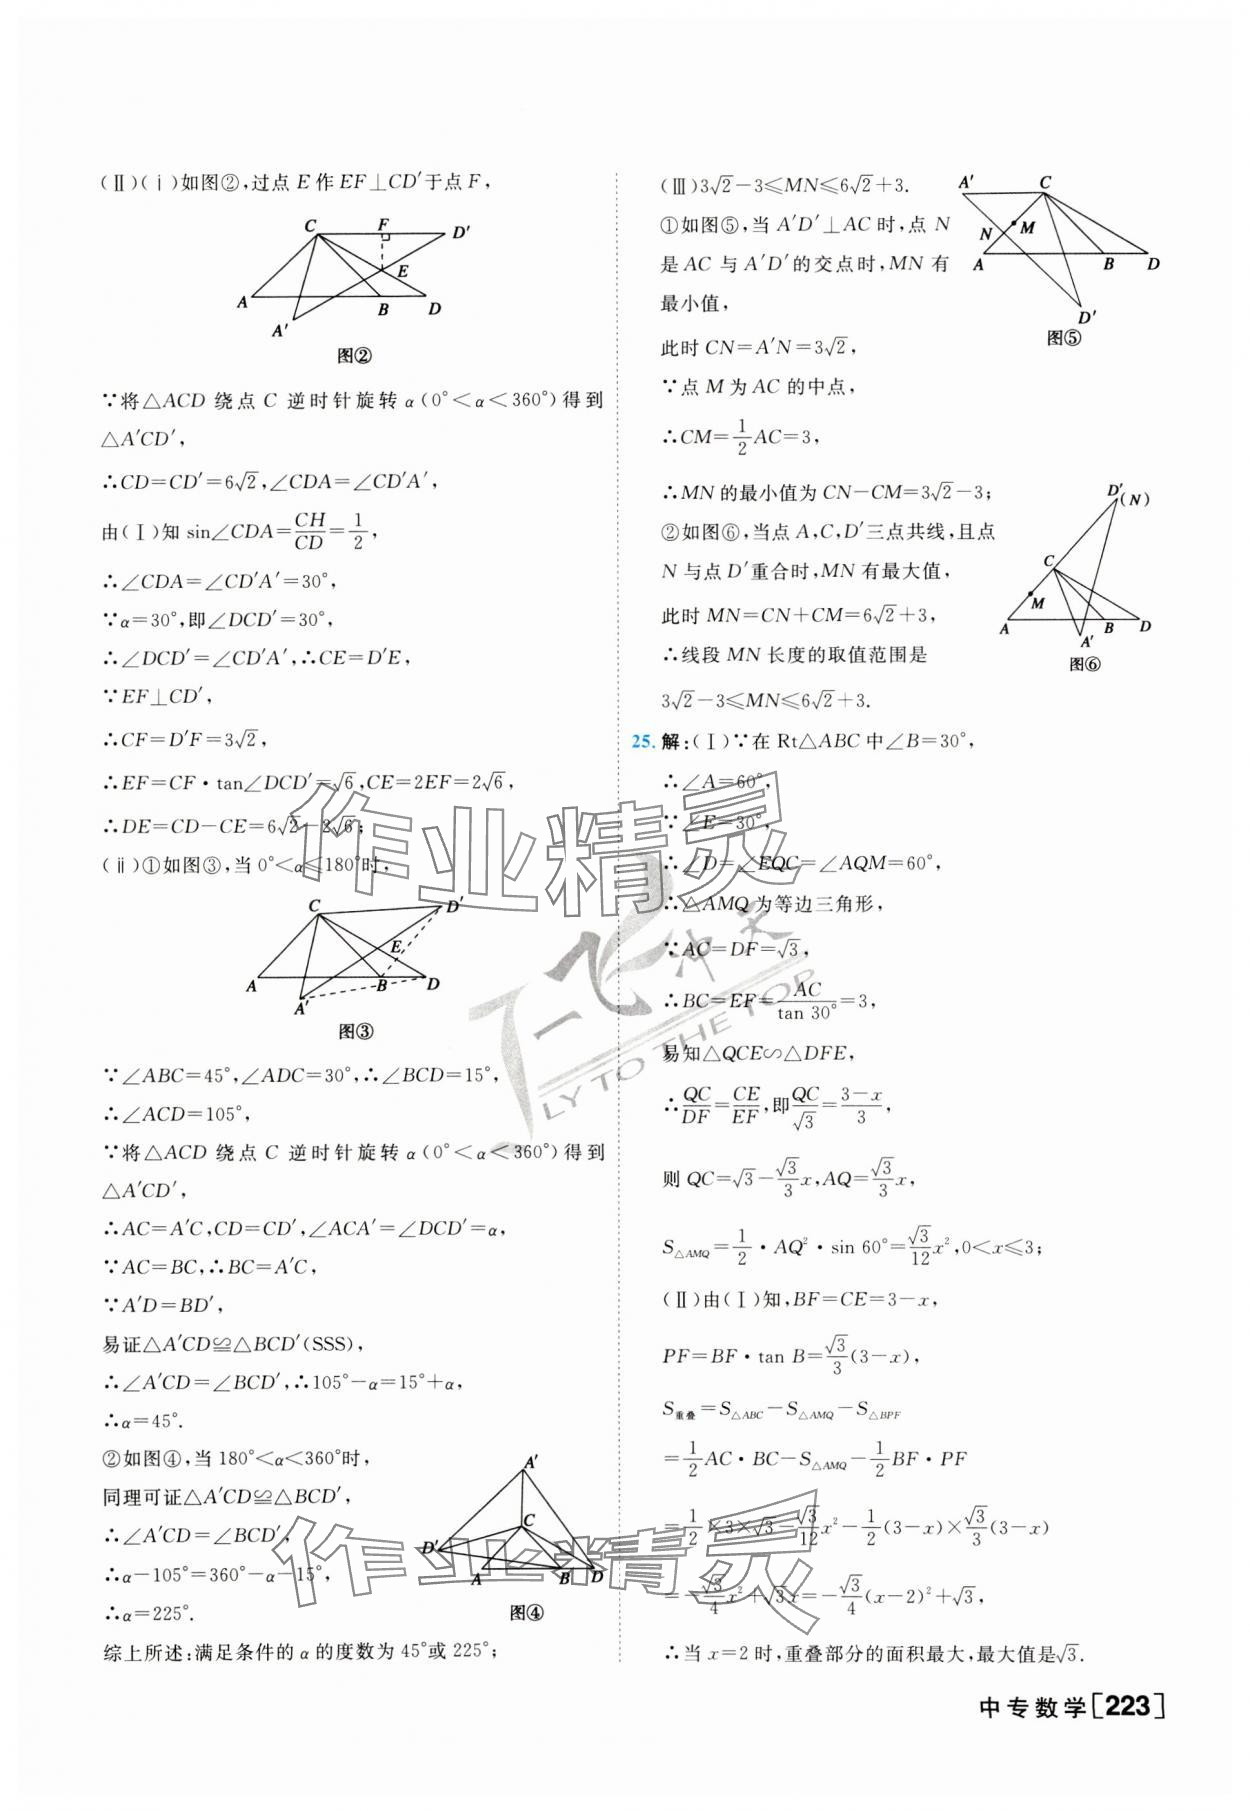 (Ⅱ)(ⅰ)如图②,过点 E 作 EF⊥CD′于点 F,
C F D′
E
A B D
A′
图②
∵将△ACD 绕点 C 逆时针旋转 α(0°<α<360°)得到
△A′CD′,
∴CD=CD′=6√2,∠CDA=∠CD′A′,
由(Ⅰ)知 sin∠CDA=CH/CD=1/2,
∴∠CDA=∠CD′A′=30°,
∵α=30°,即∠DCD′=30°,
∴∠DCD′=∠CD′A′,∴CE=D′E,
∵EF⊥CD′,
∴CF=D′F=3√2,
∴EF=CF·tan∠DCD′=√6,CE=2EF=2√6,
∴DE=CD−CE=6√2−2√6;
(ⅱ)①如图③,当 0°<α≤180°时,
C D′
E
A B D
A′
图③
∵∠ABC=45°,∠ADC=30°,∴∠BCD=15°,
∴∠ACD=105°,
∵将△ACD 绕点 C 逆时针旋转 α(0°<α<360°)得到
△A′CD′,
∴AC=A′C,CD=CD′,∠ACA′=∠DCD′=α,
∵AC=BC,∴BC=A′C,
∵A′D=BD′,
易证△A′CD≌△BCD′(SSS),
∴∠A′CD=∠BCD′,∴105°−α=15°+α,
∴α=45°.
②如图④,当 180°<α<360°时,
同理可证△A′CD≌△BCD′,
∴∠A′CD=∠BCD′,
∴α−105°=360°−α−15°,
∴α=225°.
A′
C
D′
A B D
图④
综上所述:满足条件的 α 的度数为 45°或 225°;
(Ⅲ)3√2−3≤MN≤6√2+3.
①如图⑤,当 A′D′⊥AC 时,点 N
是 AC 与 A′D′的交点时,MN 有
最小值,
此时 CN=A′N=3√2,
A′ C
N M
A B D
D′
图⑤
∵点 M 为 AC 的中点,
∴CM=1/2AC=3,
∴MN 的最小值为 CN−CM=3√2−3;
②如图⑥,当点 A,C,D′三点共线,且点
N 与点 D′重合时,MN 有最大值,
此时 MN=CN+CM=6√2+3,
∴线段 MN 长度的取值范围是
3√2−3≤MN≤6√2+3.
D′(N)
C
M
A B D
A′
图⑥
25. 解:(Ⅰ)∵在 Rt△ABC 中∠B=30°,
∴∠A=60°,
∵∠E=30°,
∴∠D=∠EQC=∠AQM=60°,
∴△AMQ 为等边三角形,
∵AC=DF=√3,
∴BC=EF=AC/tan 30°=3,
易知△QCE∽△DFE,
∴QC/DF=CE/EF,即QC/√3=(3−x)/3,
则 QC=√3−√3/3x,AQ=√3/3x,
S△AMQ=1/2·AQ²·sin 60°=√3/12x²,0<x≤3;
(Ⅱ)由(Ⅰ)知,BF=CE=3−x,
PF=BF·tan B=√3/3(3−x),
S重叠=S△ABC−S△AMQ−S△BPF
=1/2AC·BC−S△AMQ−1/2BF·PF
=1/2×3×√3−√3/12x²−1/2(3−x)×√3/3(3−x)
=−√3/4x²+√3x=−√3/4(x−2)²+√3,
∴当 x=2 时,重叠部分的面积最大,最大值是√3.
作业精灵
一飞冲天
FLY TO THE TOP
作业精灵
中专数学[223]